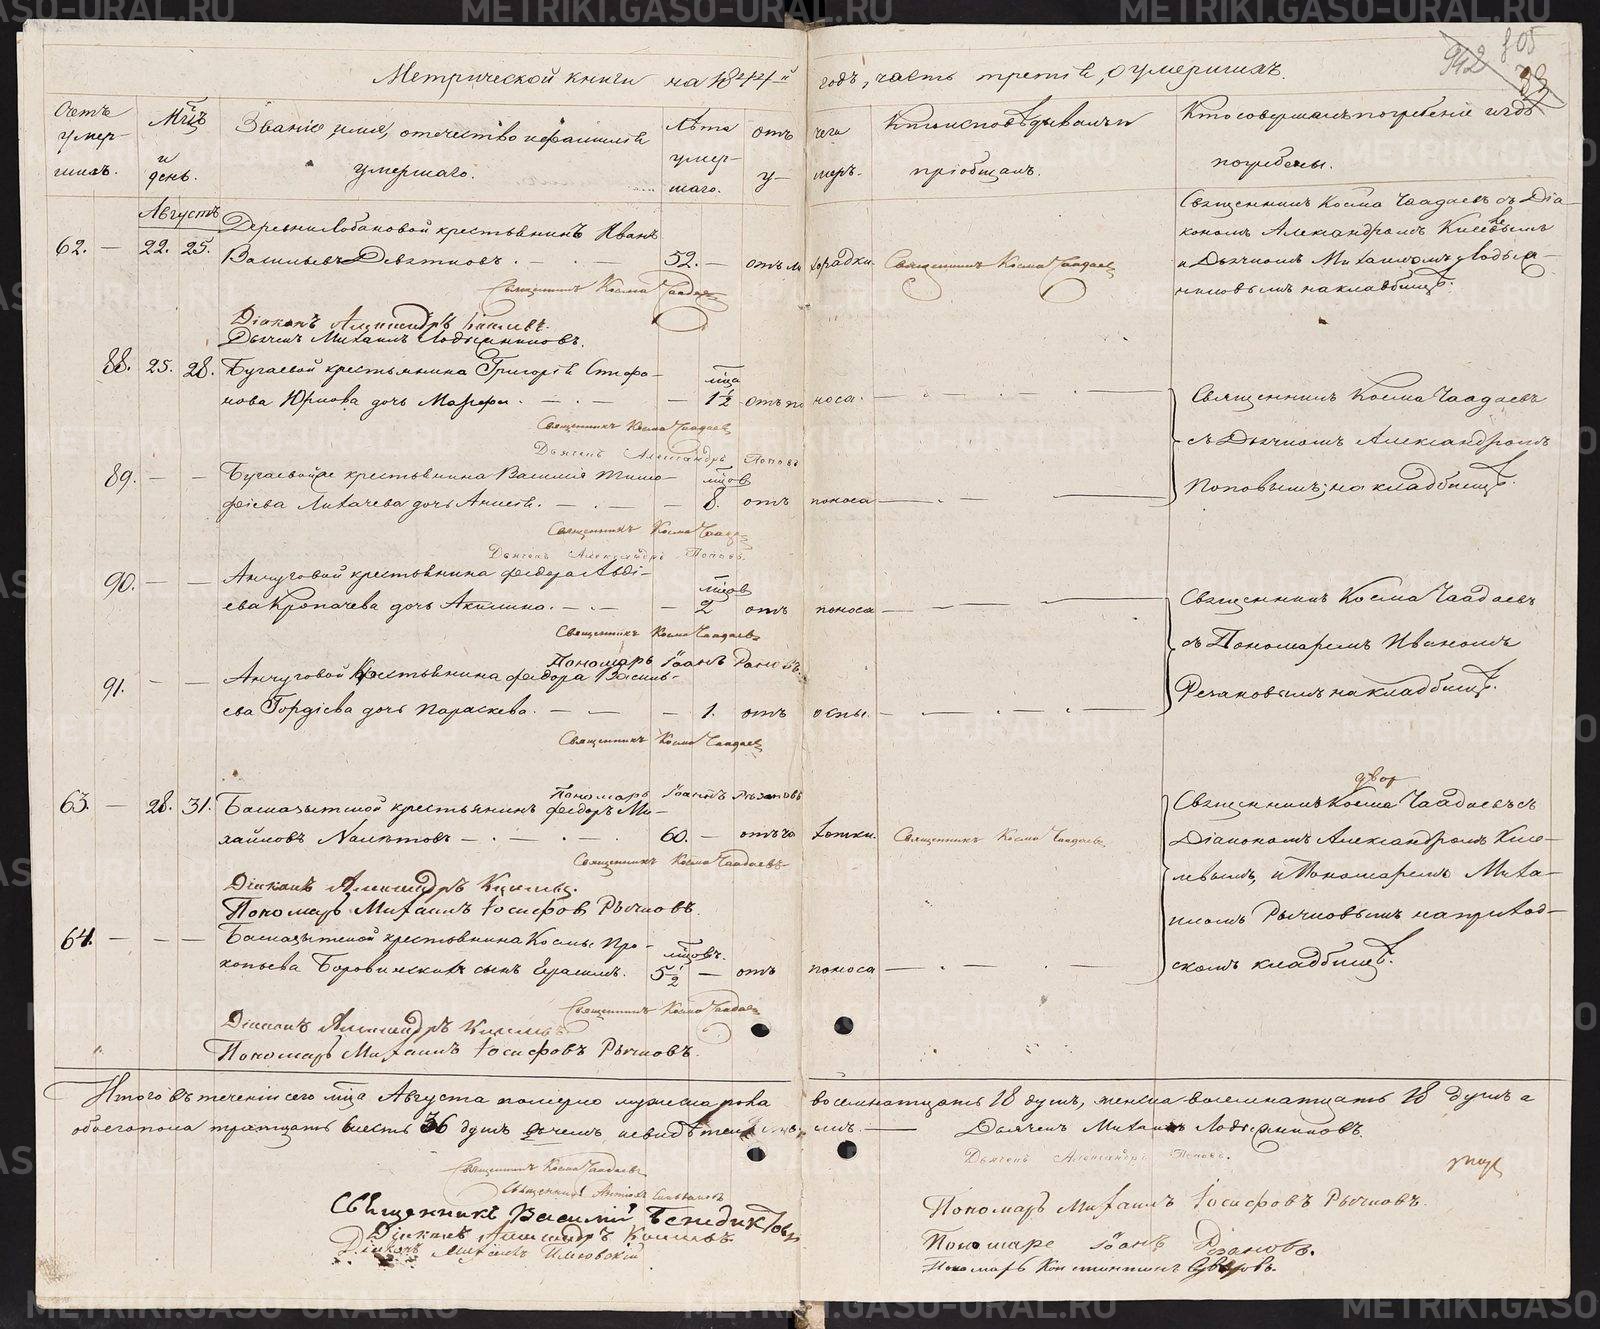 Метрической книги на 1844й годъ, часть третія, о умершихъ.
942 805
83
Счетъ умер-шихъ.
Мѣсяцъ и день.
Званіе, имя, отечество и фамилія умершаго.
Лѣта умер-шаго.
отъ чего у-меръ.
Кто исповѣдывалъ и пріобщалъ.
Кто совершалъ погребеніе и гдѣ погребены.
Августъ
62. — 22. 25. Деревни Лобановой крестьянинъ Иванъ
Васильевъ Девятковъ. — 52. — отъ лихорадки. Священникъ Косма Чаадаевъ
Священникъ Косма Чаадаевъ съ Діа-
кономъ Александромъ Киселевымъ
и Дьячкомъ Михаиломъ Лодыж-
никовымъ на кладбищѣ.
Священникъ Косма Чаадаевъ
Діаконъ Александръ Киселевъ.
Дьячекъ Михаилъ
88. 25. 28. Бугаевой крестьянина Григорія Стефа-
нова Юркова дочь Марфа. — мѣсяца 1½ отъ поноса. —
Священникъ Косма Чаадаевъ
съ Дьячкомъ Александромъ
Поповымъ; на кладбищѣ.
Священникъ Косма Чаадаевъ
Дьячекъ Александръ Поповъ
89. — — Бугаевой же крестьянина Василія Тимо-
фѣева Лихачева дочь Анисія. — мѣсяцовъ 8. отъ поноса —
Священникъ Косма Чаадаевъ
Дьячекъ Александръ Поповъ.
90. — — Анчуговой крестьянина Федора Авді-
ева Кропачева дочь Акилина. — мѣсяцовъ 2 отъ поноса —
Священникъ Косма Чаадаевъ
съ Пономаремъ Иваномъ
Резановымъ на кладбищѣ.
Священникъ Косма Чаадаевъ
Пономарь Іоаннъ
91. — — Анчуговой Крестьянина Федора Василь-
ева Гордѣева дочь Параскева. — 1. отъ оспы. —
Священникъ Косма Чаадаевъ
Пономарь Іоаннъ Резановъ
63. — 28. 31. Башазытской крестьянинъ Федоръ Ми-
хайловъ Налѣтовъ — 60. — отъ чахотки. Священникъ Косма Чаадаевъ
Священникъ Косма Чаадаевъ съ
Діакономъ Александромъ Кисе-
левымъ, и Пономаремъ Миха-
иломъ Рычковымъ на приход-
скомъ кладбищѣ.
Священникъ Косма Чаадаевъ
Діаконъ Александръ Киселевъ.
Пономарь Михаилъ Іосифовъ Рычковъ.
64. — — — крестьянина Космы Про-
копьева Боровинскихъ сынъ Ерасимъ. мѣсяцовъ. 5½ — отъ поноса —
Священникъ Косма Чаадаевъ
Діаконъ Александръ Киселевъ
Пономарь Михаилъ Іосифовъ Рычковъ.
Итого въ теченіи сего мѣсяца Августа померло мужеска пола восемнатцать 18 душъ, женска восемнатцать 18 душъ а
обоего пола тритцать шесть 36 душъ въ чемъ и свидѣтельствуемъ. —
Дьячекъ Михаилъ
Дьячекъ Александръ Поповъ.
Священникъ Косма Чаадаевъ
Священникъ
Священникъ Василій Бенедиктовъ
Діаконъ Александръ Киселевъ.
Діаконъ Михаилъ
Пономарь Михаилъ Іосифовъ Рычковъ.
Пономарь Іоаннъ Резановъ.
Пономарь Константинъ
METRIKI.GASO-URAL.RU